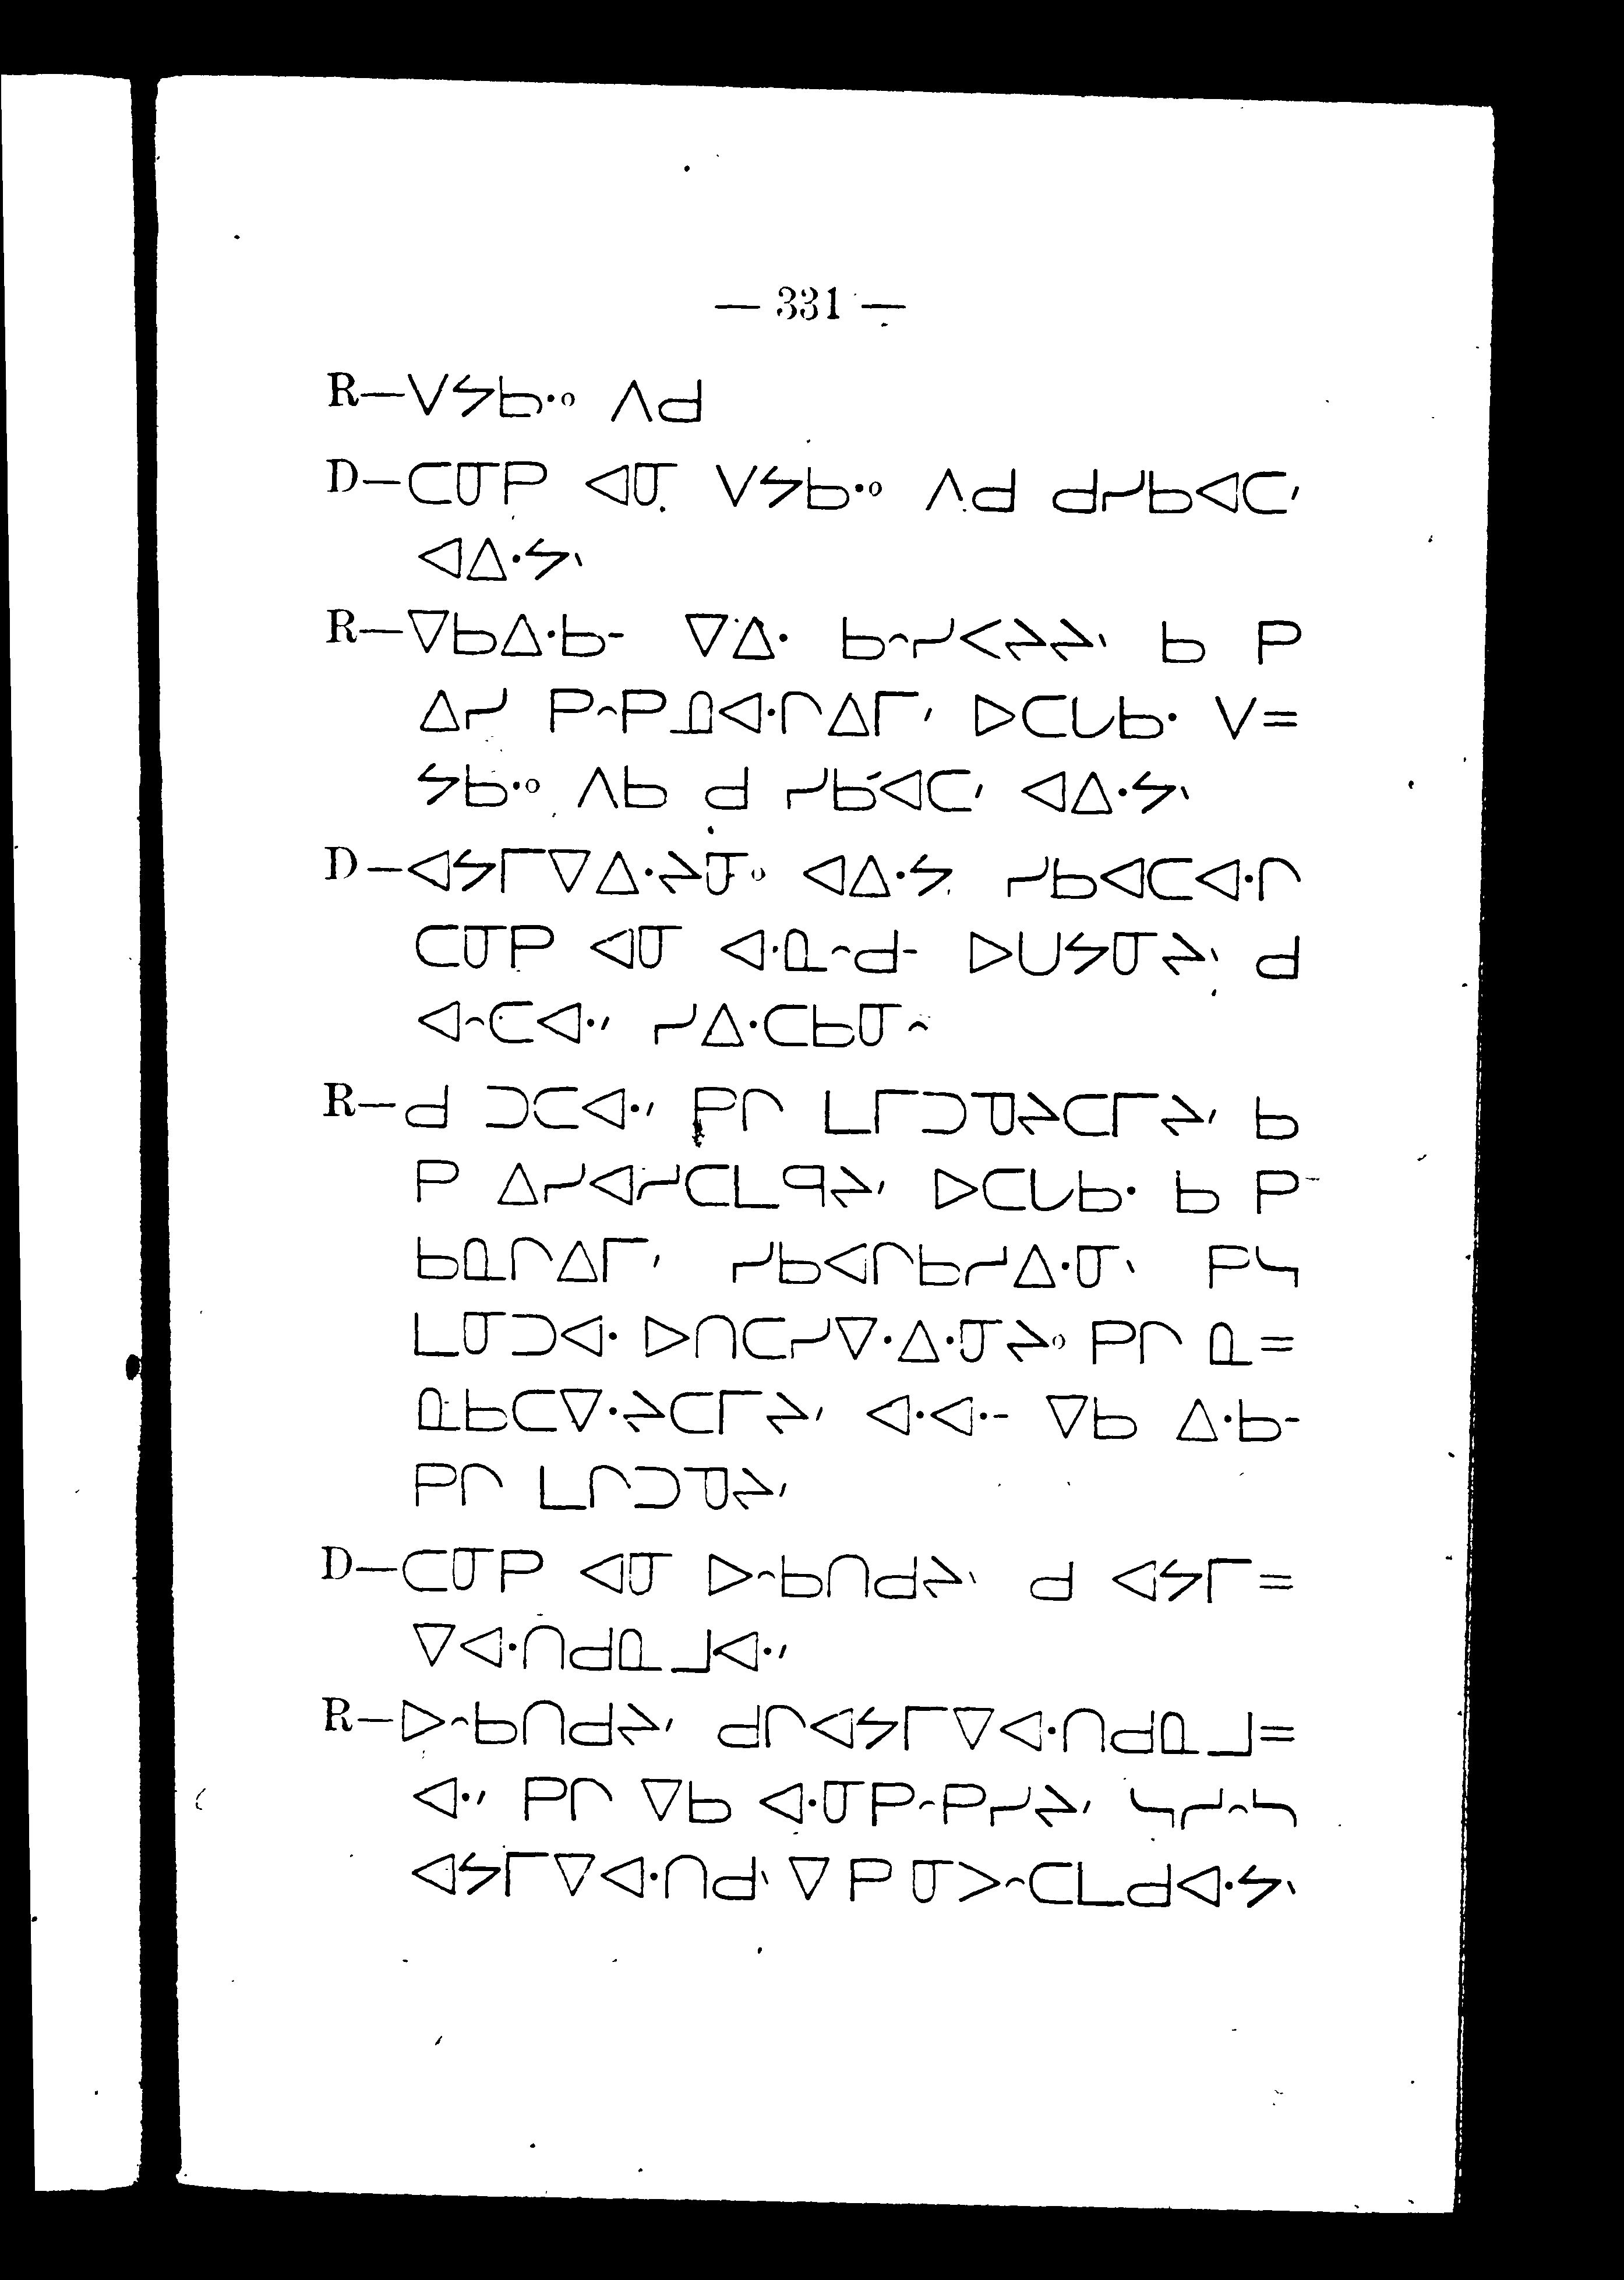 — 331 —
R—ᐯᔭᑲᐧᐤ ᐱᑯ
D—ᑕᓂᑭ ᐊᓂ ᐯᔭᑲᐧᐤ ᐱᑯ ᑯᓯᑲᐊᑕᐟ
ᐊᐃᐧᔭᐠ
R—ᐁᑲᐃᐧᑲᐨ ᐁᐃᐧ ᑲᐢᓯᐸᔨᔨᐠ ᑲ ᑭ
ᐃᓯ ᑭᐢᑭᓄᐊᐧᒋᐃᒥᐟ ᐅᑕᒐᑲᐧ ᐯ=
ᔭᑲᐧᐤ ᐱᑲ ᑯ ᓯᑲᐊᑕᐟ ᐊᐃᐧᔭᐠ
D—ᐊᔭᒥᐁᐃᐧᔨᓂᐤ ᐊᐃᐧᔭ ᓯᑲᐊᑕᐊᐧᒋ
ᑕᓂᑭ ᐊᓂ ᐊᐧᓇᐢᑯᐨ ᐅᑌᔭᓂᔨᐠ ᑯ
ᐊᐢᑕᐊᐧᐟ ᓯᐃᐧᑕᑲᓂᐢ
R—ᑯ ᑐᑕᐊᐧᐟ ᑭᒋ ᒪᒥᑐᓀᔨᑕᒥᔨᐟ ᑲ
ᑭ ᐃᓯᐊᓯᑕᒪᑫᔨᐟ ᐅᑕᒐᑲᐧ ᑲ ᑭ
ᑲᓇᒋᐃᒥᐟ ᓯᑲᐊᒋᑲᓯᐃᐧᓂᐠ ᑭᓴ
ᒪᓂᑐᐊᐧ ᐅᑎᑕᓯᐁᐧᐃᐧᓂᔨᐤ ᑭᒋ ᓇ=
ᓇᑲᑕᐁᐧᔨᑕᒥᔨᐟ ᐊᐧᐊᐧᐨ ᐁᑲ ᐃᐧᑲᐨ
ᑭᒋ ᒪᒋᑐᓀᔨᐟ
D—ᑕᓂᑭ ᐊᓂ ᐅᐢᑲᑎᑯᔨᐠ ᑯ ᐊᔭᒥ=
ᐁᐊᐧᑎᑯᓇᒧᐊᐧᐟ
R—ᐅᐢᑲᑎᑯᔨᐟ ᑯᒋᐊᔭᒥᐁᐊᐧᑎᑯᓇᒧ=
ᐊᐧᐟ ᑭᒋ ᐁᑲ ᐊᐧᓂᑭᐢᑭᓯᔨᐟ ᓴᓯᐢᓴ
ᐊᔭᒥᐁᐊᐧᑎᑯᐠ ᐁ ᑭ ᓂᐳᐢᑕᒪᑯᐊᐧᔭᐠ